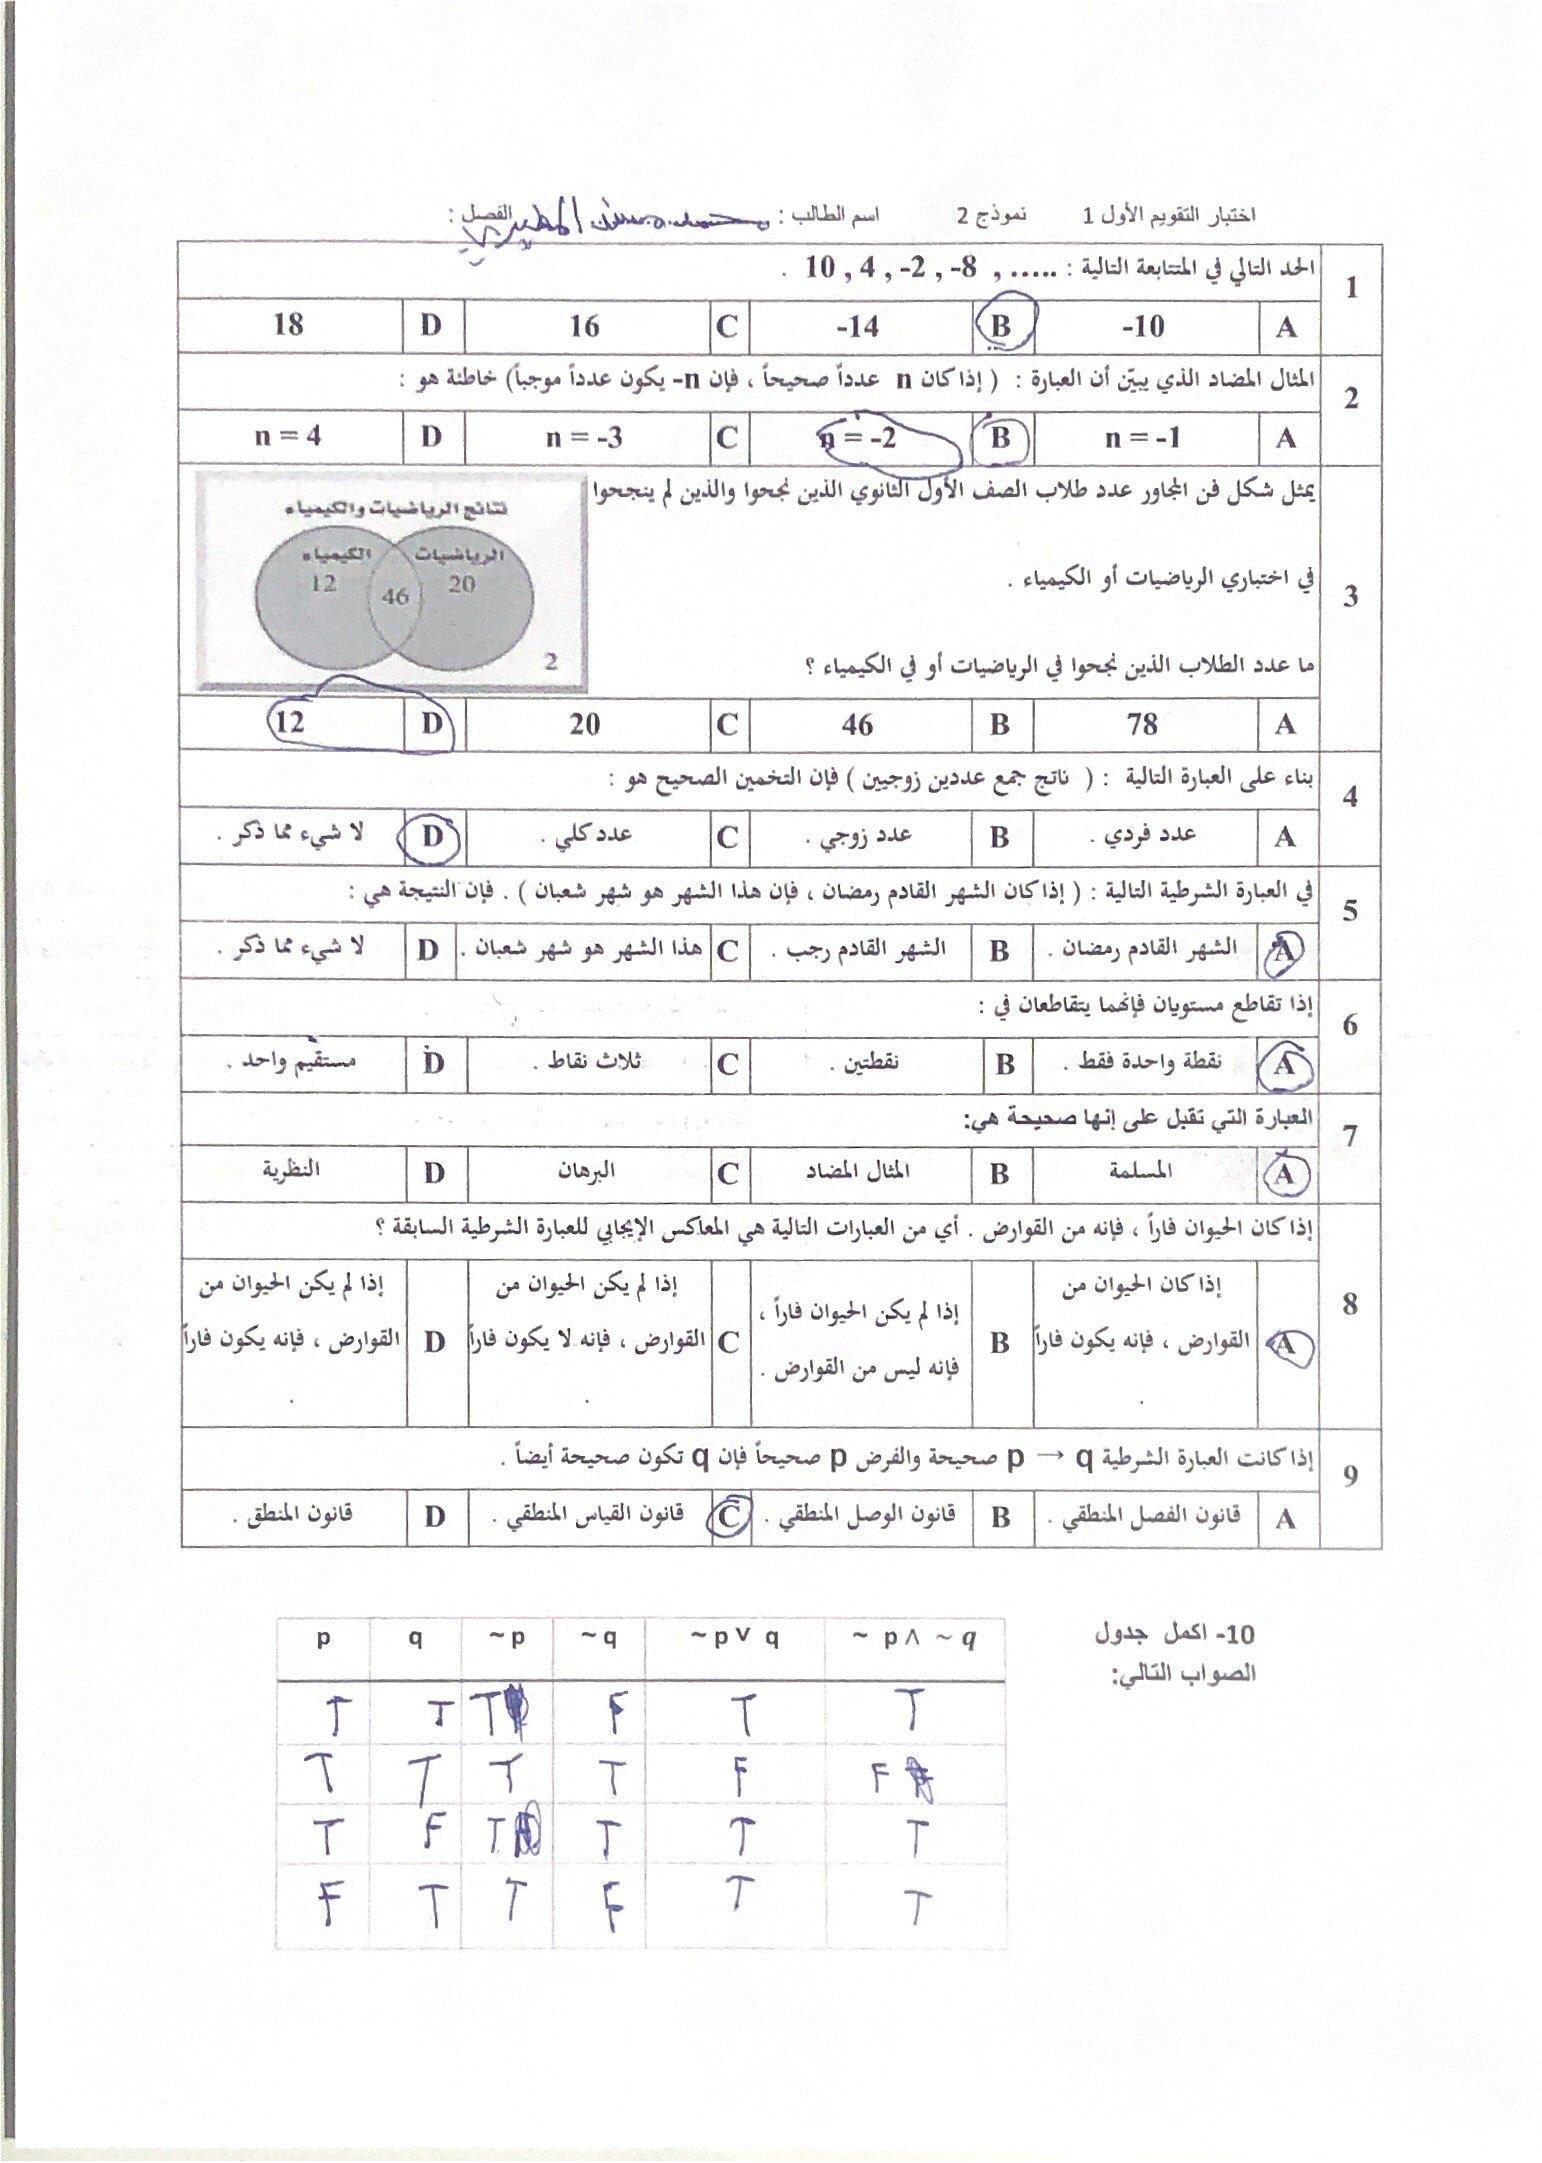 اختبار التقويم الأول 1 نموذج 2 اسم الطالب : محمد المطيري الفصل :
1 الحد التالي في المتتابعة التالية : 10 , 4 , -2 , -8 , ..... .
A -10 B -14 C 16 D 18
2 المثال المضاد الذي يبيّن أن العبارة : ( إذا كان n عدداً صحيحاً ، فإن n- يكون عدداً موجباً) خاطئة هو :
A n = -1 B n = -2 C n = -3 D n = 4
3 يمثل شكل فن المجاور عدد طلاب الصف الأول الثانوي الذين نجحوا والذين لم ينجحوا
في اختباري الرياضيات أو الكيمياء .
ما عدد الطلاب الذين نجحوا في الرياضيات أو في الكيمياء ؟
نتائج الرياضيات والكيمياء
الرياضيات الكيمياء
20 46 12
2
A 78 B 46 C 20 D 12
4 بناء على العبارة التالية : ( ناتج جمع عددين زوجيين ) فإن التخمين الصحيح هو :
A عدد فردي . B عدد زوجي . C عدد كلي . D لا شيء مما ذكر .
5 في العبارة الشرطية التالية : ( إذا كان الشهر القادم رمضان ، فإن هذا الشهر هو شهر شعبان ) . فإن النتيجة هي :
A الشهر القادم رمضان . B الشهر القادم رجب . C هذا الشهر هو شهر شعبان . D لا شيء مما ذكر .
6 إذا تقاطع مستويان فإنهما يتقاطعان في :
A نقطة واحدة فقط . B نقطتين . C ثلاث نقاط . D مستقيم واحد .
7 العبارة التي تقبل على إنها صحيحة هي:
A المسلمة B المثال المضاد C البرهان D النظرية
8 إذا كان الحيوان فاراً ، فإنه من القوارض . أي من العبارات التالية هي المعاكس الإيجابي للعبارة الشرطية السابقة ؟
A إذا كان الحيوان من
القوارض ، فإنه يكون فاراً
.
B إذا لم يكن الحيوان فاراً ،
فإنه ليس من القوارض .
C إذا لم يكن الحيوان من
القوارض ، فإنه لا يكون فاراً
.
D إذا لم يكن الحيوان من
القوارض ، فإنه يكون فاراً
.
9 إذا كانت العبارة الشرطية p → q صحيحة والفرض p صحيحاً فإن q تكون صحيحة أيضاً .
A قانون الفصل المنطقي . B قانون الوصل المنطقي . C قانون القياس المنطقي . D قانون المنطق .
10- اكمل جدول
الصواب التالي:
p q ~p ~q ~p ∨ q ~ p ∧ ~q
T T T F T T
T T T T F F
T F T T T T
F T T F T T